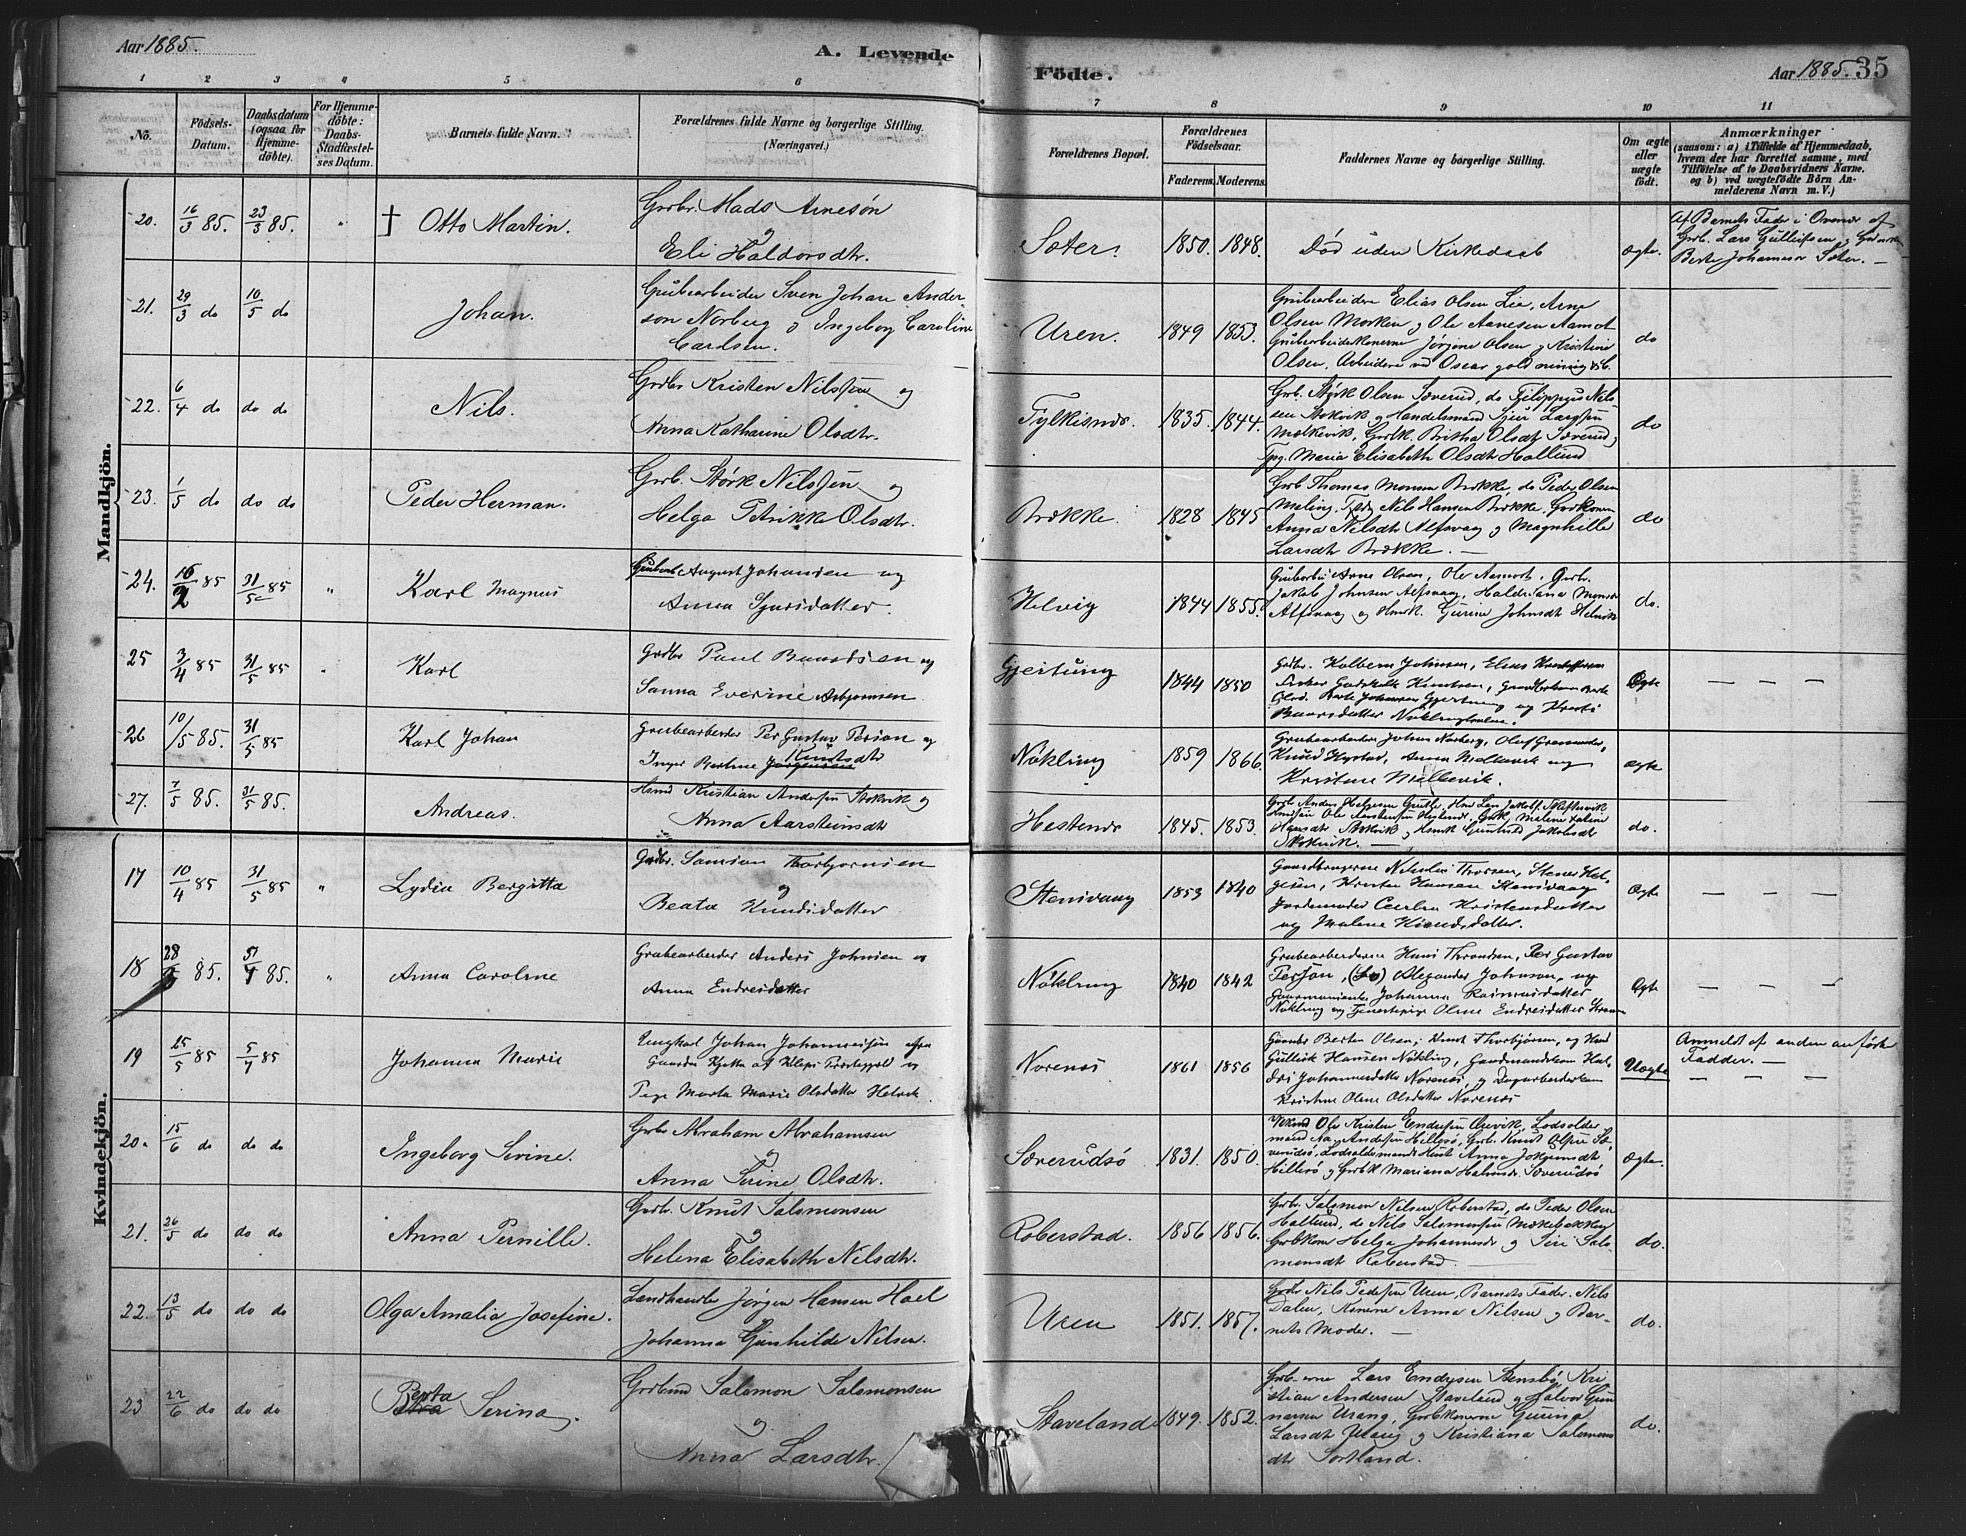 Aar 1885.
A. Levende
Födte.
Aar 1885. 35
1 2 3 4 5 6 7 8 9 10 11
No.
Födsels-
Datum.
Daabsdatum
(ogsaa for
Hjemme-
döbte).
For Hjemme-
döbte:
Daabs-
Stadfæstel-
ses Datum.
Barnets fulde Navn.
Forældrenes fulde Navne og borgerlige Stilling.
(Næringsvei.)
Forældrenes Bopæl.
Forældrenes
Födselsaar.
Faderens. Moderens.
Faddernes Navne og borgerlige Stilling.
Om ægte
eller
uægte
födt.
Anmærkninger
(saasom: a) i Tilfælde af Hjemmedaab,
hvem der har forrettet samme, med
Tilföielse af to Daabsvidners Navne.
og b) ved uægtefödte Börn An-
melderens Navn m. V.)
Mandkjön.
20. 16/3 85. 23/3 85. " † Otto Martin.
Grdbr. Mads Arnesøn
g
Eli Haldorsdtr.
Sæter. 1850. 1848. Død uden Kirkedaab ægte.
Af Barnets Fader i Overvær af
Grdb. Lars Gullifsen og
Berte Johannesn Sæter. —
21. 29/3 do 10/5 do Johan.
Grubearbeider Sven Johan Ander-
son Norberg g Ingeborg Caroline
Carlsen.
Uren. 1849 1853.
Grubearbeidere Elias Olsen Lie, Arne
Olsen Morken g Ole Aanesen Aamot
Grubearbeiderkonerne Jørgine Olsen g Kristine
Olsen, Arbeidere ved Oscar gold mining
do
22. 6/4 do do do Nils.
Grdbr Kristen Nilssen og
Anna Katharine Olsdtr.
Fylkisnes. 1835. 1844.
Grb. Størk Olsen Sæverud, do Filippus Nil-
sen Stokvik g Handelsmand Sjur Larssen
Mælkevik, Grdk. Britha Olsdt Sæverud,
Tpg. Maria Elisabeth Olsdt Hallund
do
23. 1/5 do do do Peder Herman.
Grdb. Størk Nilssen og
Helga Petrikke Olsdtr.
Brække. 1828 1845
Grdb Thomas Monsen Brække, do Peder Olsen
Meling, Nils Hansen Brække, Grdkonen
Anna Nilsdt Alfsvaag g Magnhille
Larsdt Brække. —
do
24. 16/2 85 31/5 85 " Karl Magnus
Grubearb August Johansen og
Anna Sjursdatter.
Helvig 1844 1855
Grubarb: Arne Olsen, Ole Aamot, Grb.
Jakob Johnsen Alfsvaag, Haldriana Monsdr
Alfsvaag og Gurine Johnsdt Helvik
do.
25 3/4 85 31/5 85 " Karl
Grdbr Paul Baardsen og
Sanna Everine Asbjørnsen
Gjeitung 1844 1850
Grdbr. Kolbein Johnsen, Elias Kristoffersen
Godskalk Knutsen, Berte
Olsd. Berte Johannesn Gjeitung og Kristi
Baarsdatter Nøkling
Ægte — — —
26 10/5 85. 31/5 85 Karl Johan
Grubearbeider Per Gustav Person og
Inger Bertine Jørgensen Knutsdtr
Nökling 1859 1866.
Grubearbeiderne Johan Norberg, Oluf
Knud Hystad, Anna Mælkevik og
Kristine Mælkevik.
ægte
27. 7/5 85. 31/5 85. Andreas.
Hsmd Kristian Andersen Stokvik g
Anna Aarsteinsdt
Hestenes 1845. 1853.
Grdb Anders Helgesen Grutle, Lars Jakobs.
Ole Aarsteinsen Hestenes, Grdk Malene
Hansdt Stokvik g Gunhild Jakobsdt
Stokvik. —
do.
Kvindekjön.
17 10/4 85 31/5 85 " Lydia Bergitta
Grdbr. Samson Thorbjørnsen
og
Beata Knudsdatter
Stensvaag 1853 1840
Gaardbrugerne Nikolai Thorsen, Stener Hel-
gesen, Kristen Hansen
Jordemoder Cecilia Kristensdatter
og Malene Knudsdatter.
Ægte — — —
18 28/5 85. 5/7 85. " Anna Caroline
Grubearbeider Anders Johnsen og
Anna Endresdatter
Nökling 1840 1842
Grubearbeiderne Hans Throndsen, Per Gustav
Person, Alexander Johnson, og
Johanna Rasmusdatter
Nökling og Tjenestepige Oline Endresdatter
Ægte — — —
19 25/5 85 5/7 85 Johanna Marie
Ungkarl Johan Johannessøn fra
Gaarden af Klepp Præstegjeld og
Pige Marta Marie Olsdatter Helvik
Norenes 1861 1856
Gaardbr Berten Olsen, Knut Thorbjørnsen, og
Gullik Hansen Nökling, Gaardmandskone
Johannesdatter Norenes, og Dagarbeiderkone
Kristine Oline Olsdatter Norenes
Uægte
Anmeldt af anden anførte
Fadder. —
— — —
20. 15/6 do do do Ingeborg Serine.
Grbr Abraham Abrahamsen
g
Anna Serine Olsdtr.
Sæverudsø 1831. 1850.
Ole Kristen Endresen Ørevik, Lodsolder-
mand Aa. Andersen Hillesø, Grb. Knut Olsen Sæ-
verudsø, Lodsoldermands Anna Jokjemsdt
Hillesø g Grbk Mariana Sæverudsø
Ægte.
21. 26/5 do do do Anna Pernille.
Grdbr. Knut Salomonsen
g
Helena Elisabeth Nilsdtr.
Roberstad. 1856 1856.
Grb. Salomon Nilsen Roberstad, do Peder Olsen
Hallund, do Nils Salomonsen Mækebakken
Grbkone Helga Johannesdr g Siri Salo-
monsdt Roberstad.
do.
22. 13/5 do do do Olga Amalia Josefine.
Landhandler Jørgen Hansen Hoel
Johanna Gunhilde Nilsen.
Uren 1851. 1857.
Grdbr Nils Pedersen Uren, Barnets Fader. Nils
Dalen, Konerne Anna Nilsen g Bar-
nets Moder. —
do.
23 22/6 do do do Berta Serina.
Grdbrnd Salomon Salomonsen
g
Anna Larsdtr.
Staveland 1849. 1852.
Grb-erne Lars Endresen Stensbø, Kri-
stian Andersen Staveland g Halvor Gun-
narsen Urang, Grbkonerne Gurina
Larsdt Urang g Kristiana Salomons
dt Sortland.
do.